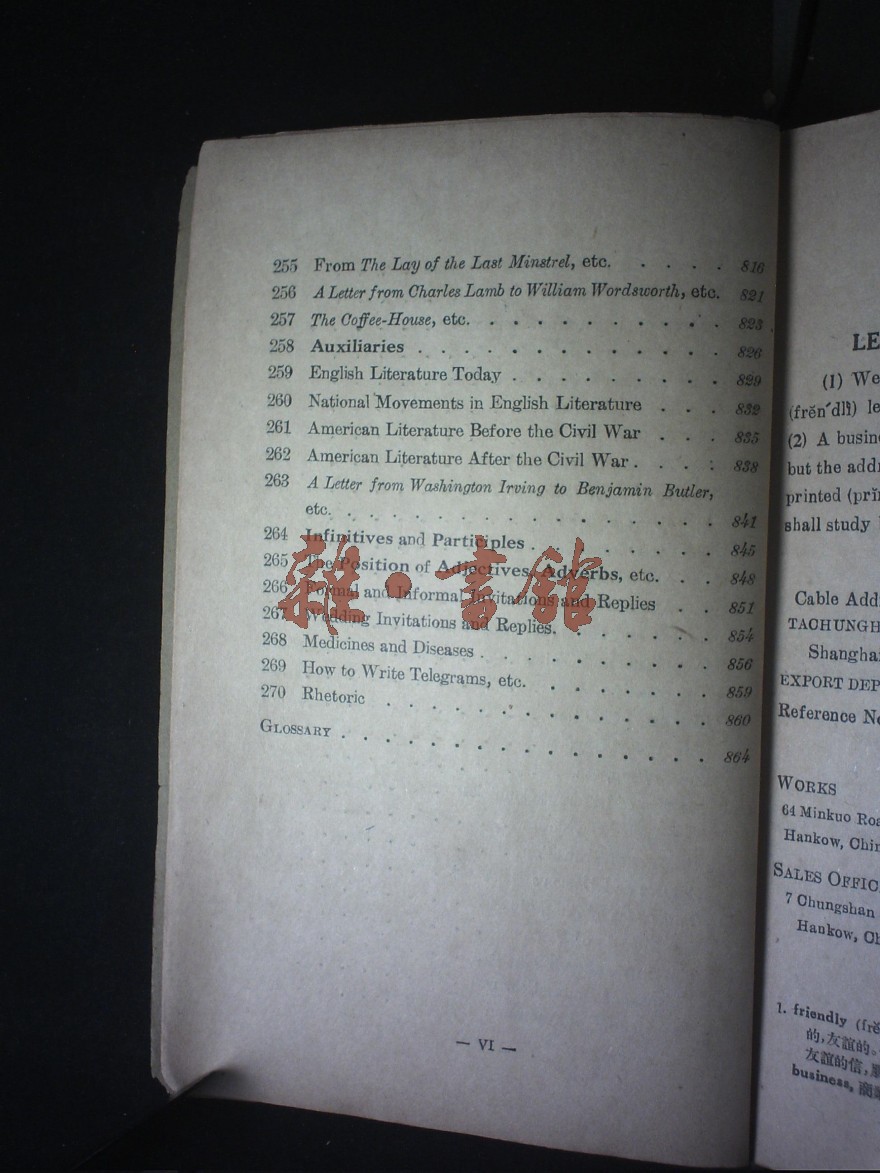 255 From The Lay of the Last Minstrel, etc. . . . . 816
256 A Letter from Charles Lamb to William Wordsworth, etc. 821
257 The Coffee-House, etc. . . . . . . . . . . 823
258 Auxiliaries . . . . . . . . . . . . . 826
259 English Literature Today . . . . . . . . . 829
260 National Movements in English Literature . . . 832
261 American Literature Before the Civil War . . . 835
262 American Literature After the Civil War . . . . 838
263 A Letter from Washington Irving to Benjamin Butler,
etc. . . . . . . . . . . . . . . . . 841
264 Infinitives and Participles . . . . . . . . 845
265 The Position of Adjectives, Adverbs, etc. . . 848
266 Formal and Informal Invitations and Replies . . 851
267 Wedding Invitations and Replies. . . . . . . 854
268 Medicines and Diseases . . . . . . . . . . 856
269 How to Write Telegrams, etc. . . . . . . . 859
270 Rhetoric . . . . . . . . . . . . . 860
GLOSSARY . . . . . . . . . . . . . . 864
— VI —
雜·書館
LE
(1) We
(frĕn´dlĭ) le
(2) A busin
but the add
printed (prĭn
shall study
Cable Add
TACHUNGH
Shangha
EXPORT DEP
Reference N
WORKS
64 Minkuo Roa
Hankow, Chin
SALES OFFIC
7 Chungshan
Hankow, Ch
1. friendly (frĕ
的,友誼的。
友誼的信,
business,